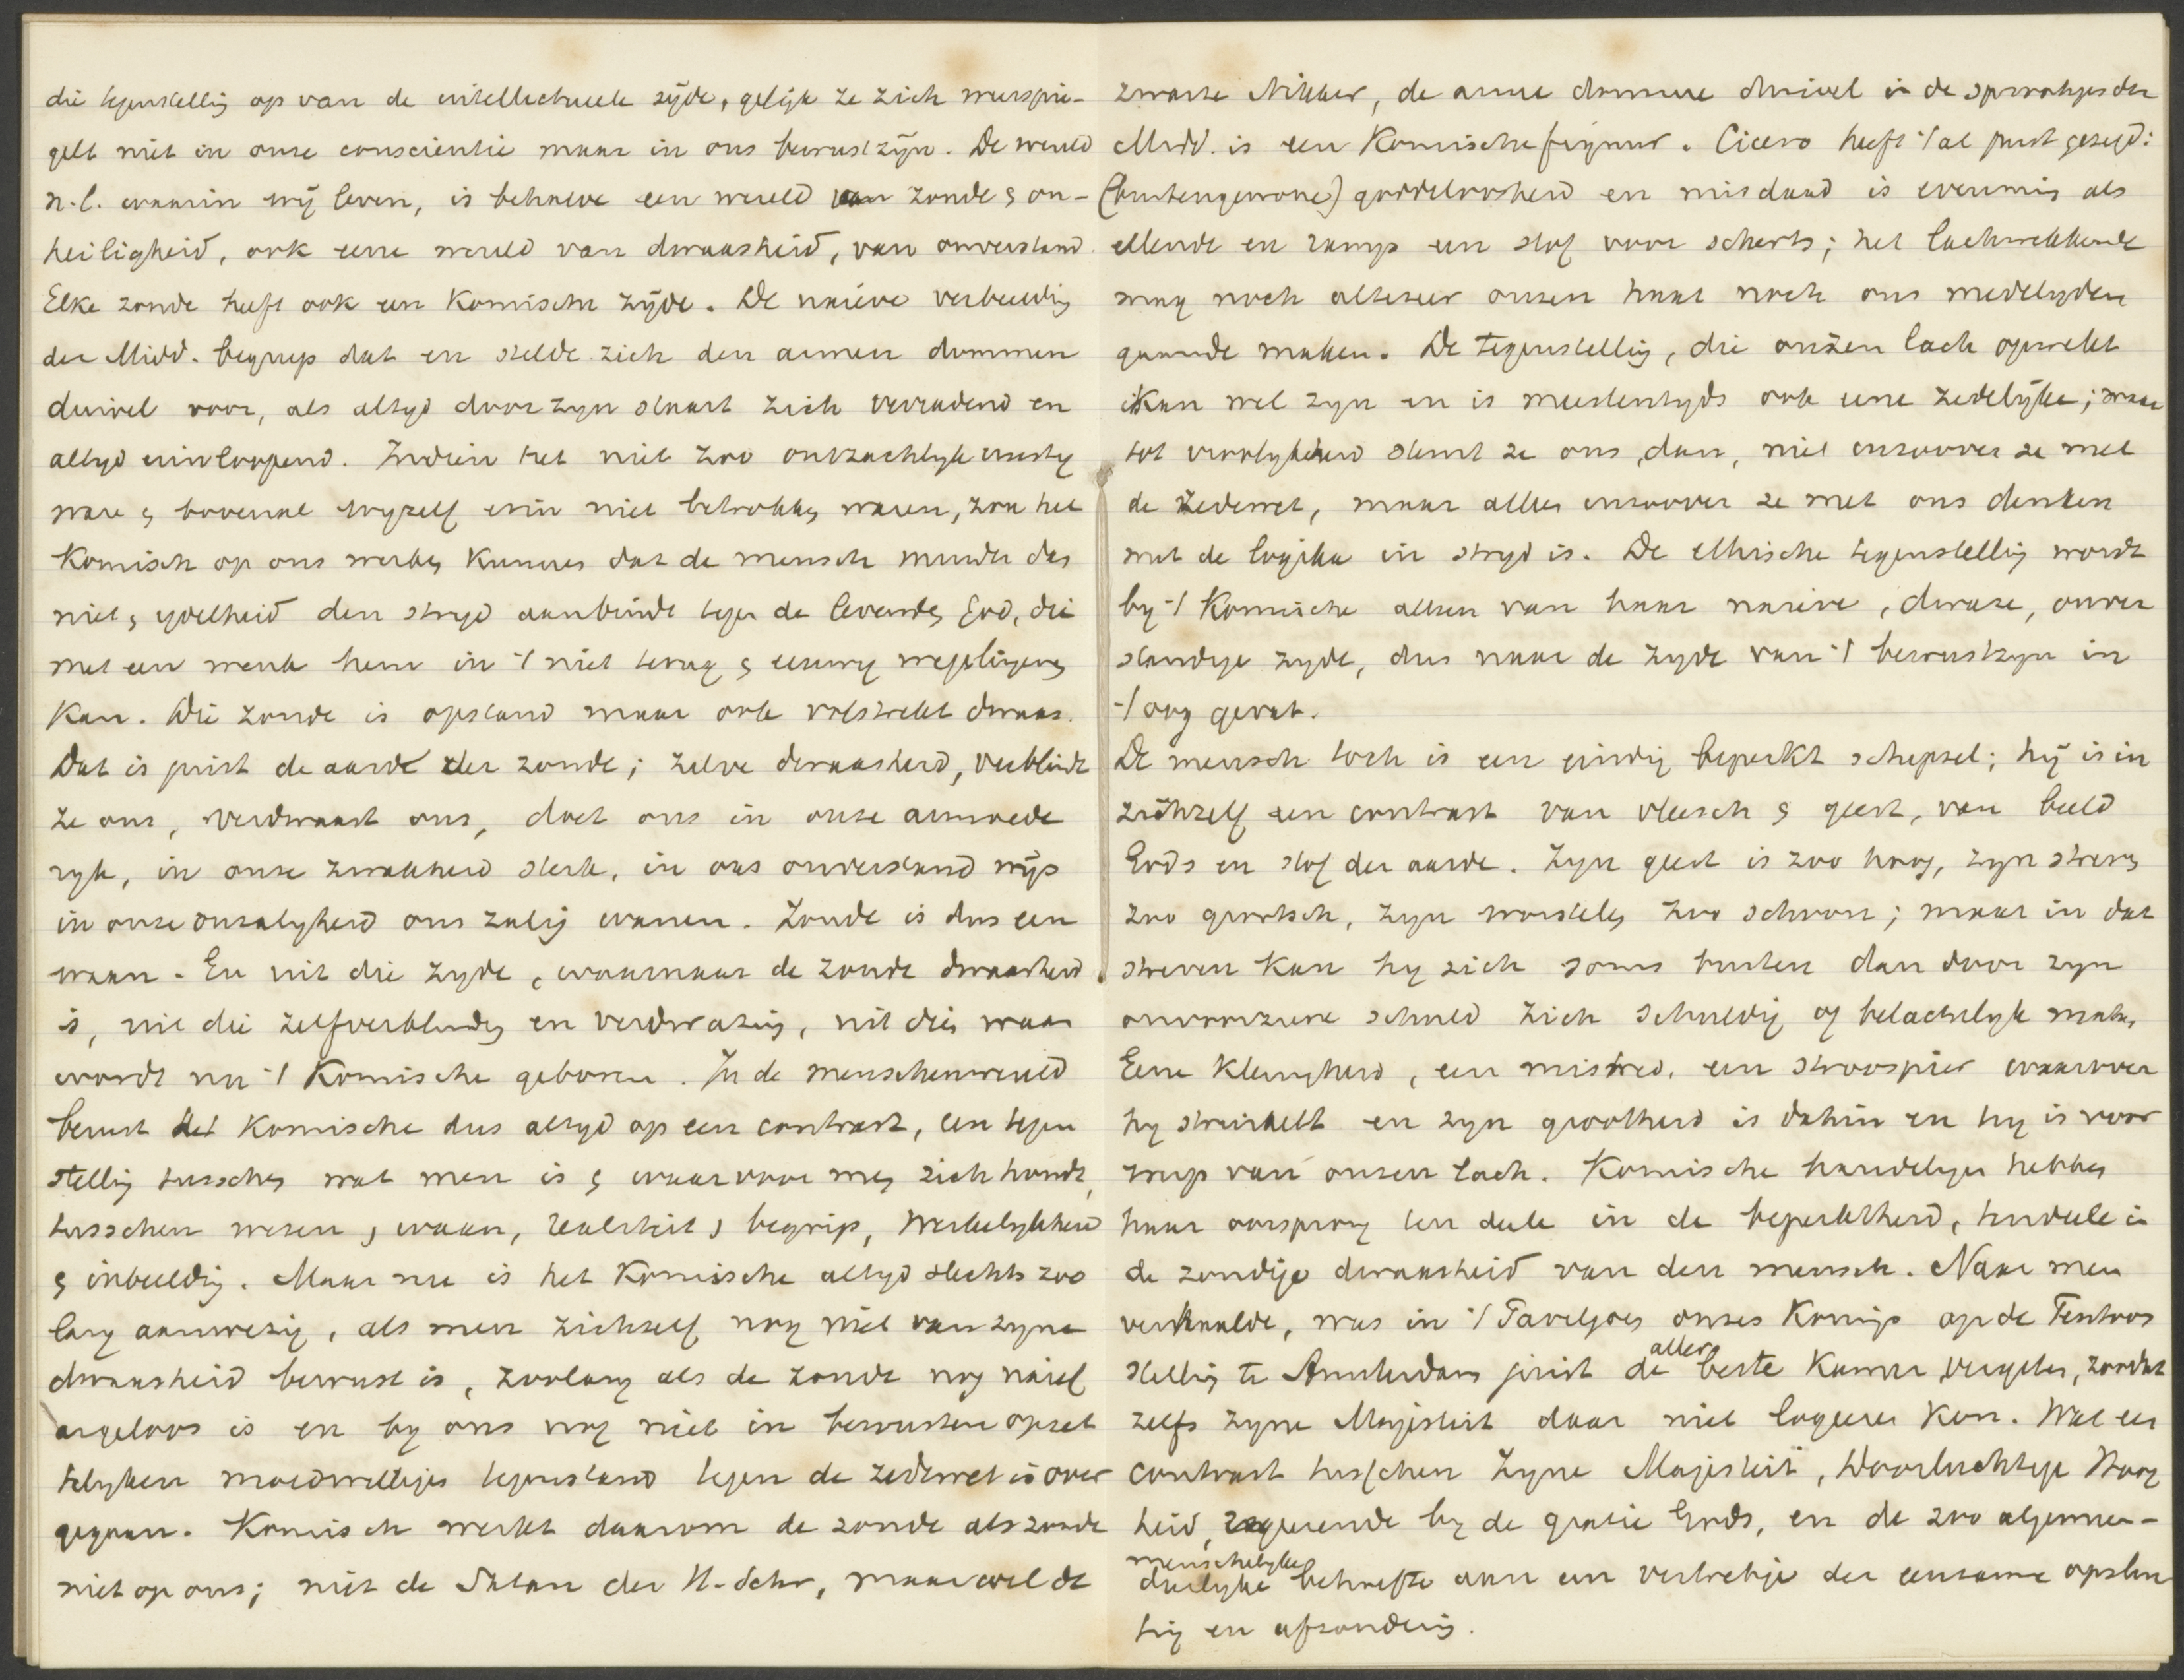 die tegenstelling op van de intellectueele zijde, gelijk ze zich weerspie-
gelt niet in onze conscientie maar in ons bewustzijn. De wereld
n.l. waarin wij leven, is behalve een wereld van zonde & on-
heiligheid, ook eene wereld van dwaasheid, van onverstand.
Elke zonde heeft ook een Komische zijde. De naieve verbeelding
der Midd. begreep dat en stelde zich den armen dommen
duivel voor, als altyd door zyn staart zich verradend en
altyd invloopend. Indien het niet zoo ontzachlyk ernstig
ware & bovenal wyzelf erin niet betrokken waren, zou het
Komisch op ons werken kunnen dat de mensch minder dan
niet & ydelheid den stryd aanbindt tegen de levenden God, die
met een wenk hem in 't niet terug & eeuwig wegslingeren
kan. Die zonde is opstand maar ook volstrekt dwaas.
Dat is juist de aard der zonde; zelve dwaasheid, verblindt
ze ons, verdwaast ons, doet ons in onze armoede
ryk, in onze zwakheid sterk, in ons onverstand wijs
in onze onzalyheid ons zalig wanen. Zonde is dus een
waan. En uit die zyde, waarnaar de zonde dwaasheid
is, uit die zelfverblinding en verdwazing, uit dien waan
wordt nu 't Komische geboren. In de menschenwereld
berust het Komische dus altyd op een contrast, een tegen
stelling tusschen wat men is & waarvoor men zich houdt,
tusschen wezen & waan, realiteit & begrip, Werkelykheid
& inbeelding. Maar nu is het Komische altyd slechts zoo
lang aanwezig, als men zichzelf nog niet van zyne
dwaasheid bewust is, zoolang als de zonde nog naief
argeloos is en by ons nog niet in bewusten opzet
telyken moedwilligen tegenstand tegen de zedewet is over
gegaan. Komisch werkt daarom de zonde als zonde
niet op ons; niet de Satan der H. Schr, maar wel de
zwarte Nikker, de arme domme duivel in de sprookjes der
Midd. is een Komische figuur. Cicero heeft 't al juist gezegd:
(buitengewone) goddeloosheid en misdaad is evenmin als
ellende en ramp een stof voor scherts; het lachwekkende
mag noch alteseer onzen haat noch ons medelyden
gaande maken. De tegenstelling, die onzen lach opwekt
Kan wel zyn en is meestentyds ook eene zedelijke; maar
tot vroolykheid stemt ze ons, dan, niet inzoover ze met
de zedewet, maar alleen inzoover ze met ons denken
met de logika in stryd is. De ethische tegenstelling wordt
by 't Komische alleen van haar naieve, dwaze, onver
standige zyde, dus naar de zyde van 't bewustzyn in
't oog gevat.
De mensch toch is een eindig beperkt schepsel; hij is in
zichzelf een contrast van vleesch & geest, van beeld
Gods en stof der aarde. Zyn geest is zoo hoog, zyn streven
zoo grootsch, zyn worstelen zoo schoon; maar in dat
streven kan hy zich soms buiten dan door zyn
onvoorziene schuld zich schuldig of belachelyk maken
Eene kleinigheid, een mistred, een stroospier waarover
hy struikelt en zyn grootheid is dahin en hy is voor
werp van onzen lach. Komische handelingen hebben
haar oorsprong ten deele in de beperktheid, tendeele in
de zondige dwaasheid van den mensch. Naar men
verhaalde, was in 't Paveljoen onzes Konings op de Tentoon
stelling te Amsterdam juist de aller beste Kamer vergeten, zoodat
zelfs zyne Majesteit daar niet logeeren kon. Wat een
contrast tusschen Zyne Majesteit, Doorluchtige Hoog
heid, regeerende by de gratie Gods, en de zoo algemeen-
menschelyke
dierlyke behoefte aan een vertrekje der eenzame opslui
ting en afzondering.